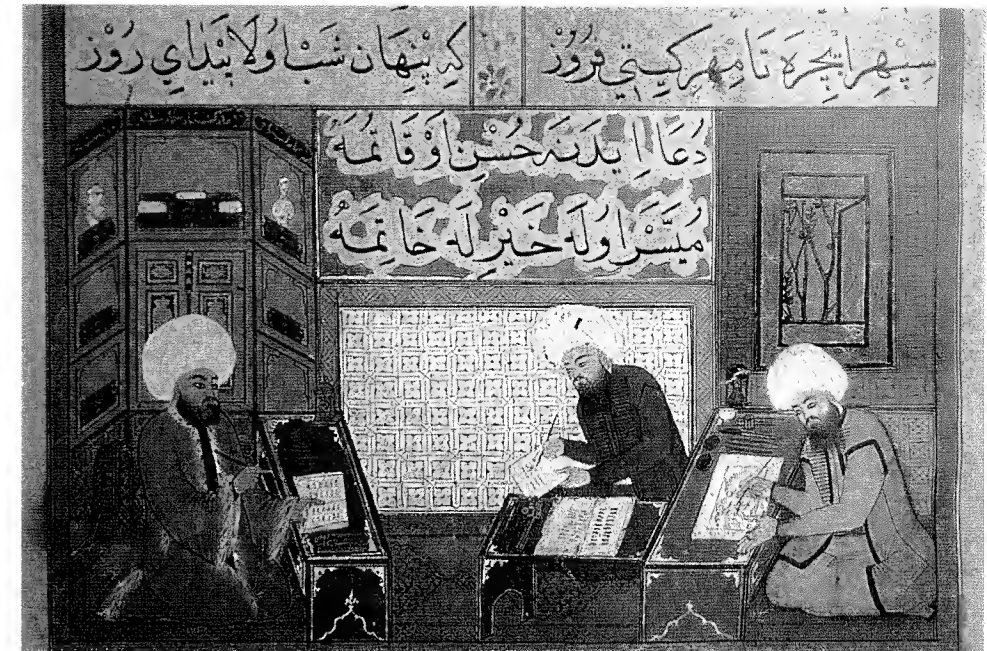 سِپِهْرايچره تَا مِهْرِ كِيتي فُرُوزْ
كِه پِنْهَان شَبْ اوُلَا پَيْدَاي رُوُزْ
دُعَا ايدنَه حُسْنِ اَوْقَاتُمَهْ
مُيَسَّرْ اوُلَه خَيْرِلَه خَاتِمَهْ